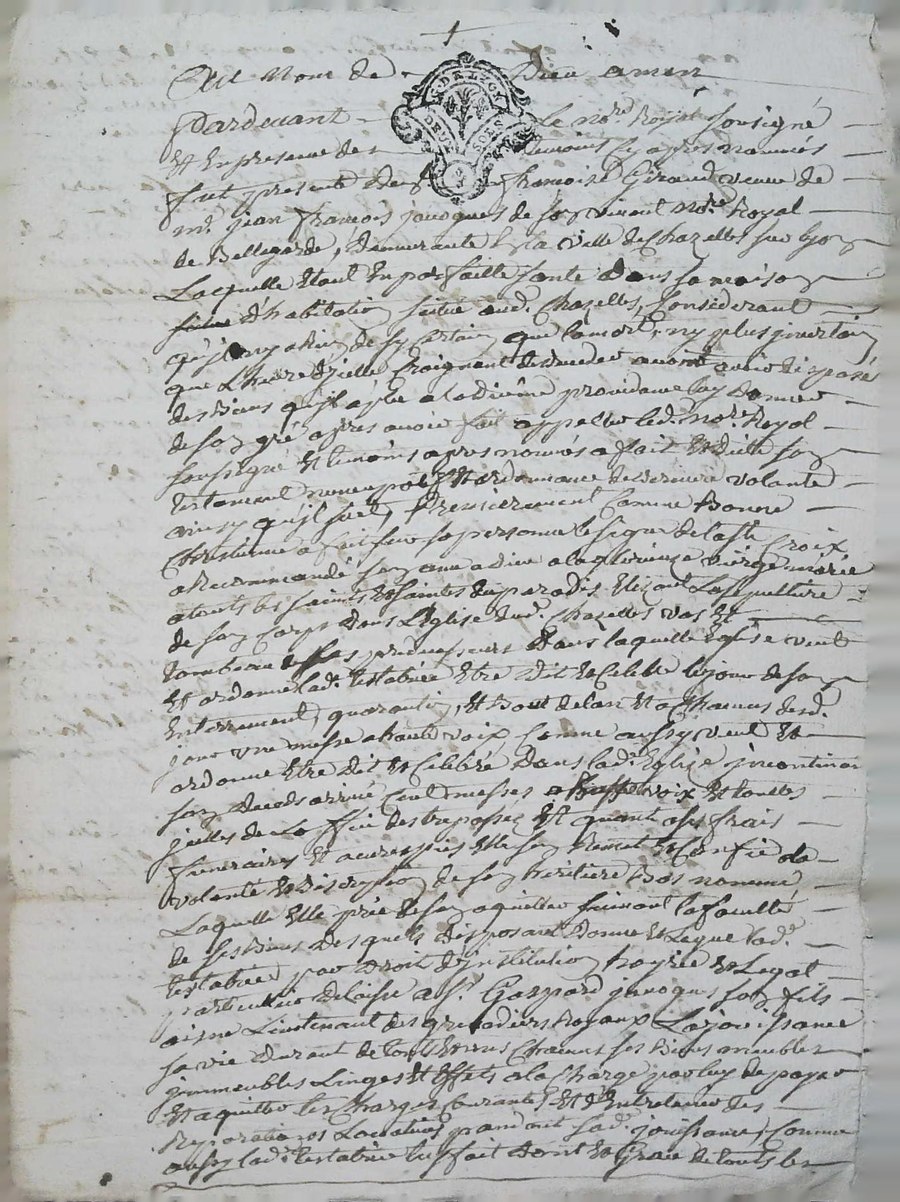 Au Nom de Dieu amen
G. DE LYON
DEUX SOLS
Pardevant Le no.re Royal soussigné
Et En presence des temoins cy apres nommés
fut presente françoise Giraud veuve de
m.r jean françois javogues de son vivant no.re Royal
de Bellegarde, demeurante En la ville de Chazelles sur Lyon
Laquelle Etant En parfaitte santé dans sa maison
d'habitation scituée aud. Chazelles, Considerant
qu'jl ny a Rien de sy Certain que la mort, ny plus jncertain
que L'heure d'jcelle Craignant de deceder avant avoir disposé
des Biens qu'jl a plu a la divine providance luy donner
de son gré apres avoir fait appeller led. no.re Royal
soussigné Et temoins apres nommés a fait Et dicté son
testament nuncupatif Et ordonnance de derniere volonté
ainsy qu'jl suit, Premierement Comme Bonne
Chretienne a fait sur sa personne le signe de la ste Croix
a Recommandé son ame a dieu a la glorieuse vierge marie
a touts les saints Et saintes du paradis, Elisant La sepulture
de son Corps dans L'Eglise dud. Chazelles vas Et
tombeau de ses predecesseurs dans laquelle Eglise veut
Et ordonne lad. testatrice Etre dit Et Celebré le jour de son
Enterrement, quarantin, Et Bout de l'an Et a Chacuns desd.
jours une messe a haute voix Comme aussy veut Et
ordonne Etre dit Et Celebré dans lad. Eglise jncontinant
son deceds arrivé Cent messes a Basse voix Et toutes
jcelles de Lofice des trepassés Et quant a ses frais
funeraires Et œuvres pies Elle s'en Remet Et Confie a la
volonté Et discretion de son heritiere Bas nommé
Laquelle Elle prie de s'en aquitter suivant la faculté
de ses Biens desquels disposant donne Et Legue lad.
testatrice par droit d'jnstitution hoyrie Et Legat
particulier delaisse a S.r Gaspard javogues son fils
aisné Lieutenant des grenadiers Royaux La jouissance
sa vie durant de touts Et uns Chacuns ses Biens meubles
jmmeubles Linges Et Effets a la Charge par luy de payer
Et aquitter les Charges Courantes Et d'Entretenir des
Reparations Locatives pendant lad. jouissance, Comme
aussy lad. testatrice luy fait dont Et Grace de touts les